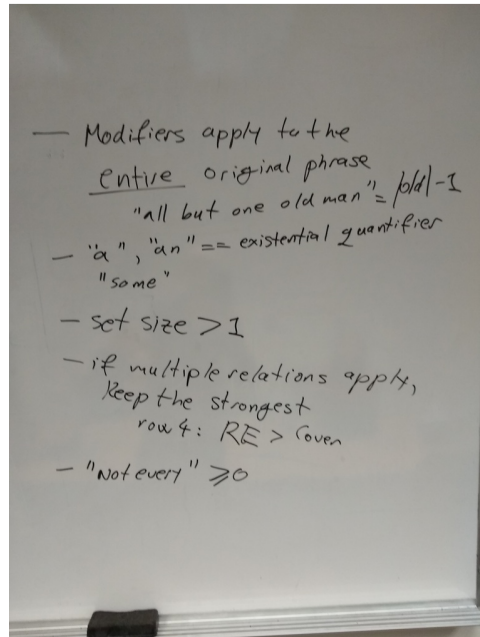 — Modifiers apply to the
entire original phrase
"all but one old man" = |old|-1
— "a", "an" == existential quantifier
"some"
— set size > 1
— if multiple relations apply,
keep the strongest
row 4: RE > Cover
— "Not every" ⩾0